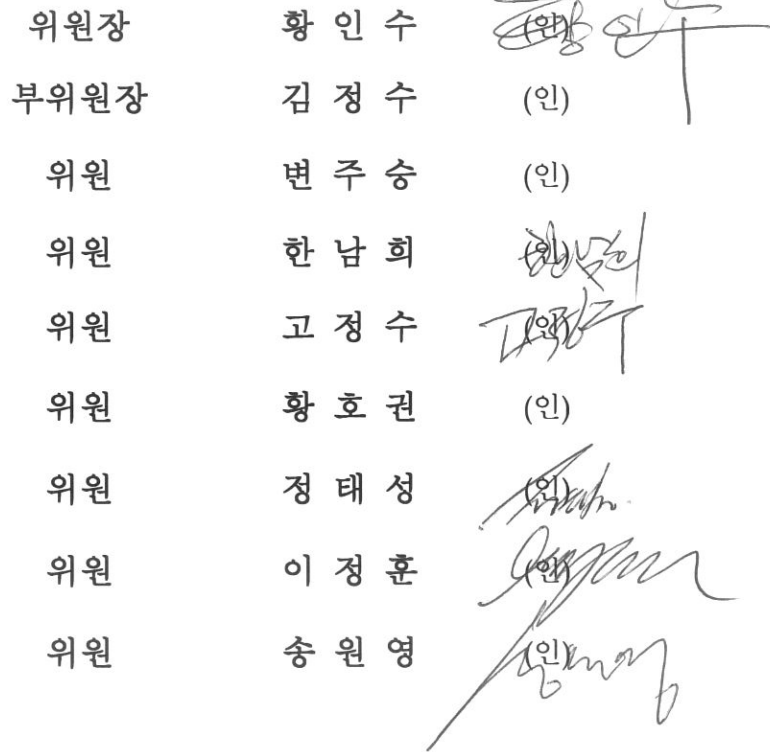 위원장 황 인 수 (인) 황인수
부위원장 김 정 수 (인)
위원 변 주 승 (인)
위원 한 남 희 (인) 한남희
위원 고 정 수 (인) 고정수
위원 황 호 권 (인)
위원 정 태 성 (인)
위원 이 정 훈 (인)
위원 송 원 영 (인)